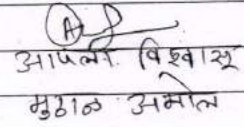 आपला विश्वासू
मुठाळ अमोल